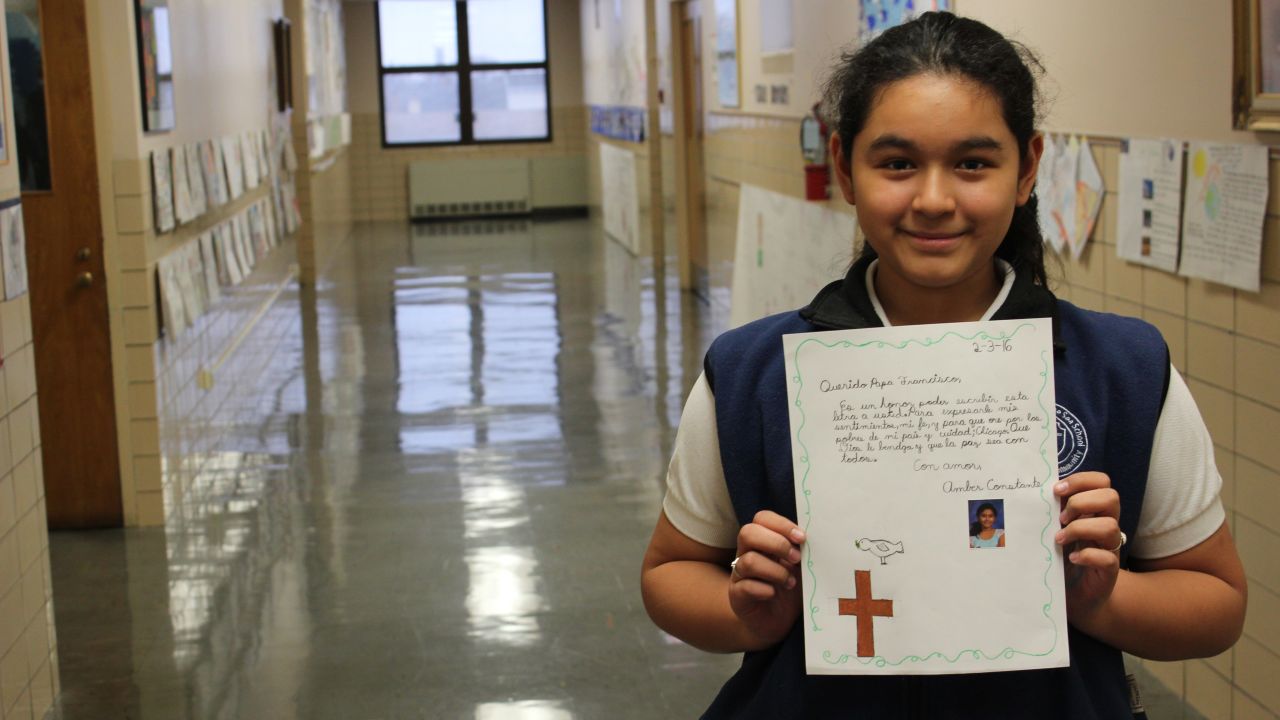 2-3-16
Querido Papa Francisco,
Es un honor poder escribir esta
letra a usted. Para expresarle mis
sentimientos, mi fe, y para que ore por los
pobres de mi país y cuidad; Chicago. Que
Dios le bendga y que la paz sea con
todos.
Con amor,
Amber Constante
School